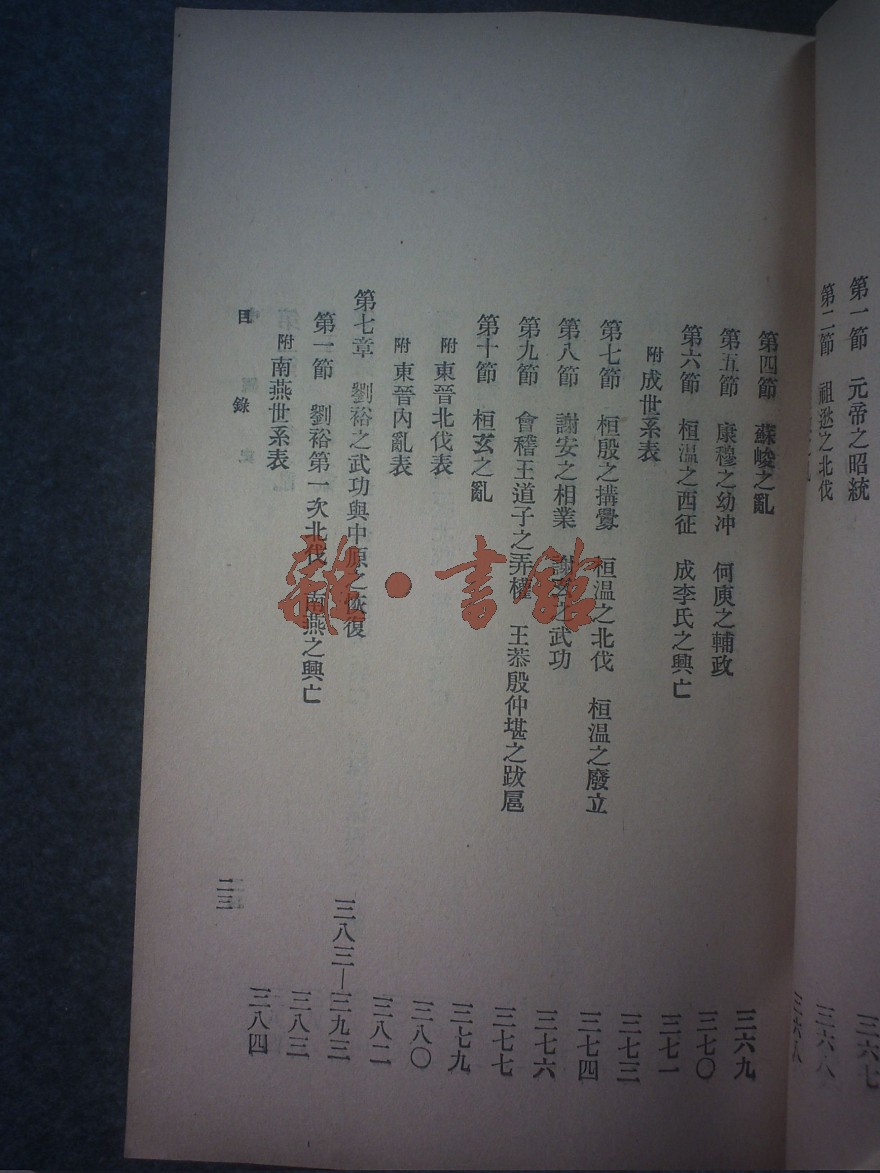 第一節 元帝之昭統 三六七
第二節 祖逖之北伐 三六八
三六八
第四節 蘇峻之亂 三六九
第五節 康穆之幼冲 何庾之輔政 三七〇
第六節 桓温之西征 成李氏之興亡 三七一
附 成世系表 三七三
第七節 桓殷之搆釁 桓温之北伐 桓温之廢立 三七四
第八節 謝安之相業 謝玄之武功 三七六
第九節 會稽王道子之弄權 王恭殷仲堪之跋扈 三七七
第十節 桓玄之亂 三七九
附 東晉北伐表 三八〇
附 東晉內亂表 三八二
第七章 劉裕之武功與中原之恢復 三八三—三九三
第一節 劉裕第一次北伐 南燕之興亡 三八三
附 南燕世系表 三八四
目錄 二三
雜·書館